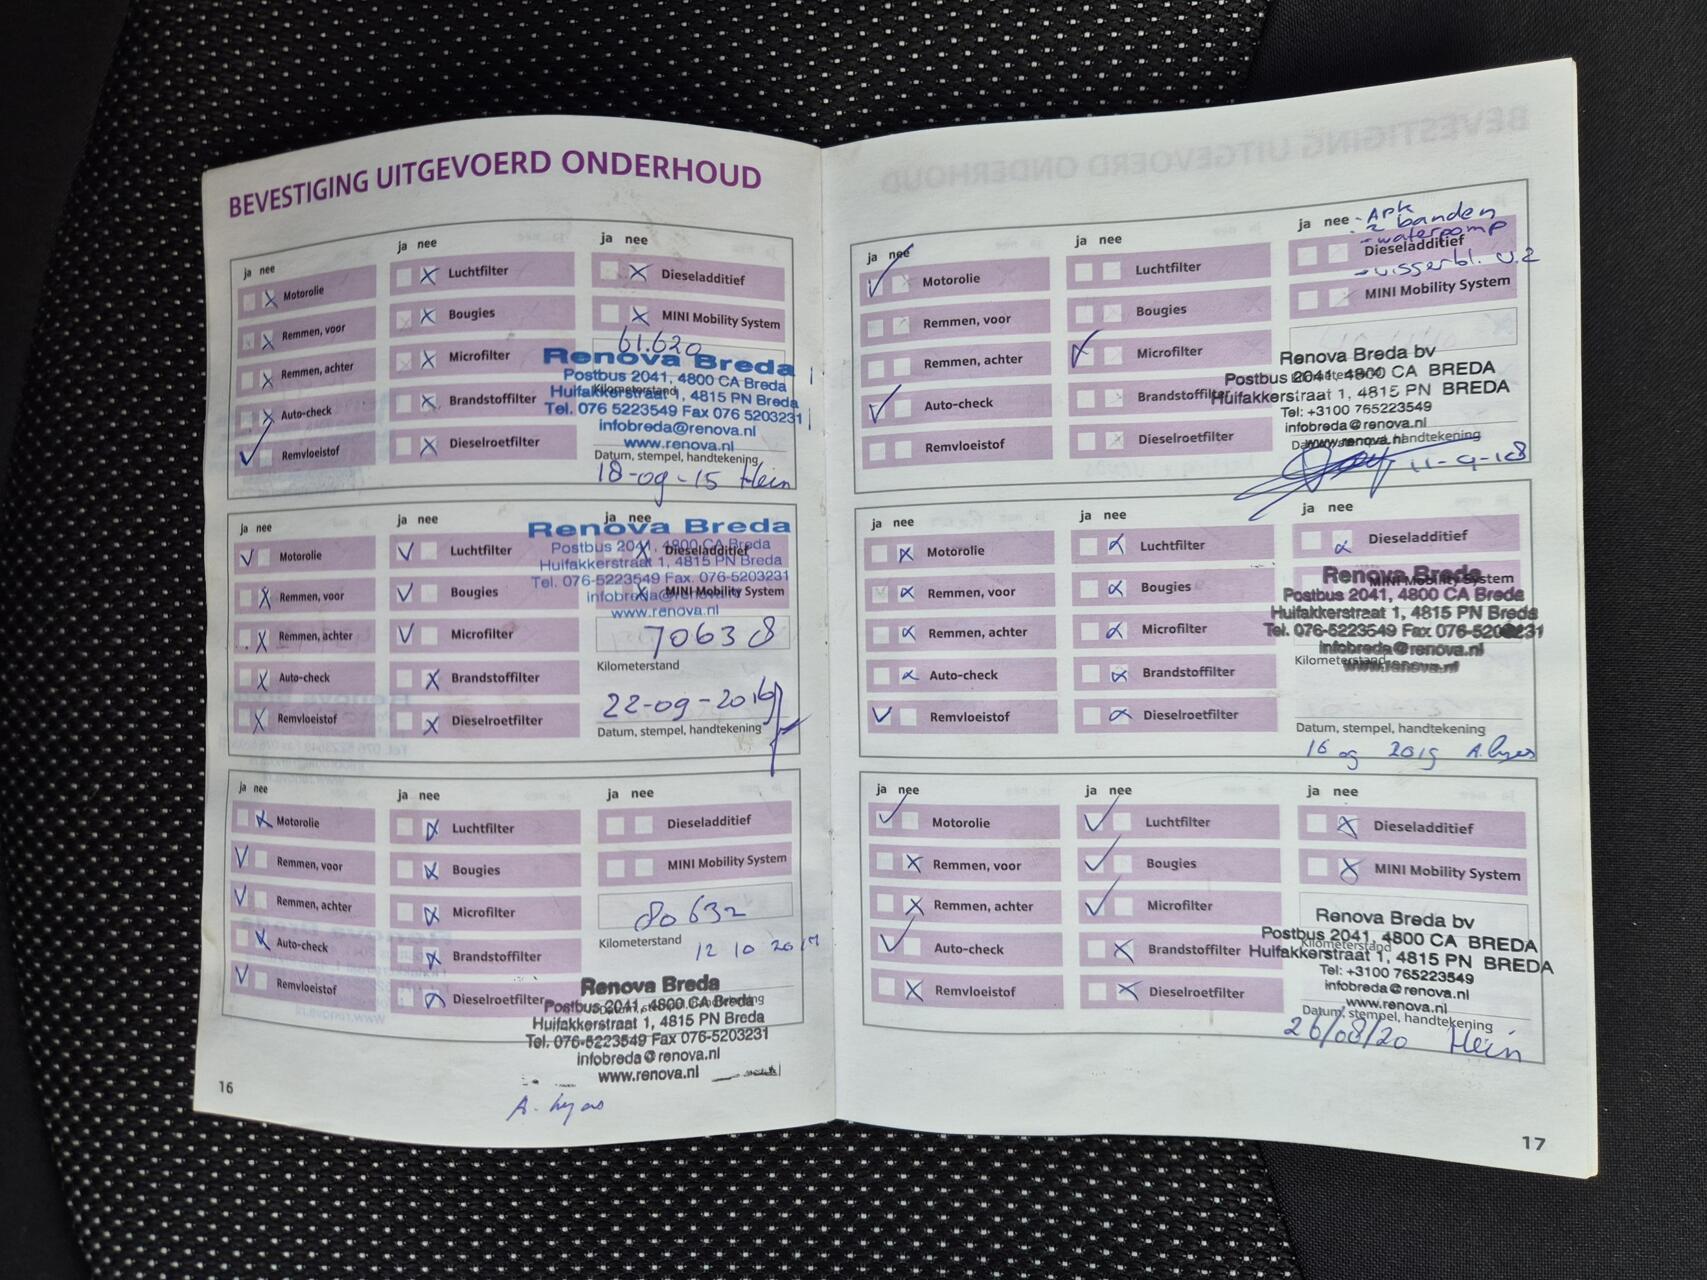 BEVESTIGING UITGEVOERD ONDERHOUD
ja nee
Motorolie
Remmen, voor
Remmen, achter
Auto-check
Remvloeistof
ja nee
Luchtfilter
Bougies
Microfilter
Brandstoffilter
Dieselroetfilter
ja nee
Dieseladditief
MINI Mobility System
61.620
Kilometerstand
Renova Breda
Postbus 2041, 4800 CA Breda
Huifakkerstraat 1, 4815 PN Breda
Tel. 076 5223549 Fax 076 5203231
infobreda@renova.nl
www.renova.nl
Datum, stempel, handtekening
18-09-15 Hein
ja nee
Motorolie
Remmen, voor
Remmen, achter
Auto-check
Remvloeistof
ja nee
Luchtfilter
Bougies
Microfilter
Brandstoffilter
Dieselroetfilter
ja nee
Dieseladditief
MINI Mobility System
Renova Breda
Postbus 2041, 4800 CA Breda
Huifakkerstraat 1, 4815 PN Breda
Tel. 076-5223549 Fax. 076-5203231
infobreda@renova.nl
www.renova.nl
70638
Kilometerstand
22-09-2016
Datum, stempel, handtekening
ja nee
Motorolie
Remmen, voor
Remmen, achter
Auto-check
Remvloeistof
ja nee
Luchtfilter
Bougies
Microfilter
Brandstoffilter
Dieselroetfilter
ja nee
Dieseladditief
MINI Mobility System
80632
Kilometerstand
12 10 2017
Renova Breda
Postbus 2041, 4800 CA Breda
Huifakkerstraat 1, 4815 PN Breda
Tel. 076-5223549 Fax 076-5203231
infobreda@renova.nl
www.renova.nl
16
ja nee
Motorolie
Remmen, voor
Remmen, achter
Auto-check
Remvloeistof
ja nee
Luchtfilter
Bougies
Microfilter
Brandstoffilter
Dieselroetfilter
ja nee
- APK
- 2 banden
- waterpomp
Dieseladditief
- wisserbl. v.2
MINI Mobility System
Renova Breda bv
Postbus 2041, 4800 CA BREDA
Huifakkerstraat 1, 4815 PN BREDA
Tel: +3100 765223549
infobreda@renova.nl
www.renova.nl
Kilometerstand
Datum, stempel, handtekening
11-9-18
ja nee
Motorolie
Remmen, voor
Remmen, achter
Auto-check
Remvloeistof
ja nee
Luchtfilter
Bougies
Microfilter
Brandstoffilter
Dieselroetfilter
ja nee
Dieseladditief
MINI Mobility System
Renova Breda
Postbus 2041, 4800 CA Breda
Huifakkerstraat 1, 4815 PN Breda
Tel. 076-5223549 Fax 076-5203231
infobreda@renova.nl
www.renova.nl
Kilometerstand
Datum, stempel, handtekening
16 09 2019
ja nee
Motorolie
Remmen, voor
Remmen, achter
Auto-check
Remvloeistof
ja nee
Luchtfilter
Bougies
Microfilter
Brandstoffilter
Dieselroetfilter
ja nee
Dieseladditief
MINI Mobility System
Renova Breda bv
Postbus 2041, 4800 CA BREDA
Huifakkerstraat 1, 4815 PN BREDA
Tel: +3100 765223549
infobreda@renova.nl
www.renova.nl
Kilometerstand
Datum, stempel, handtekening
26/08/20 Hein
17